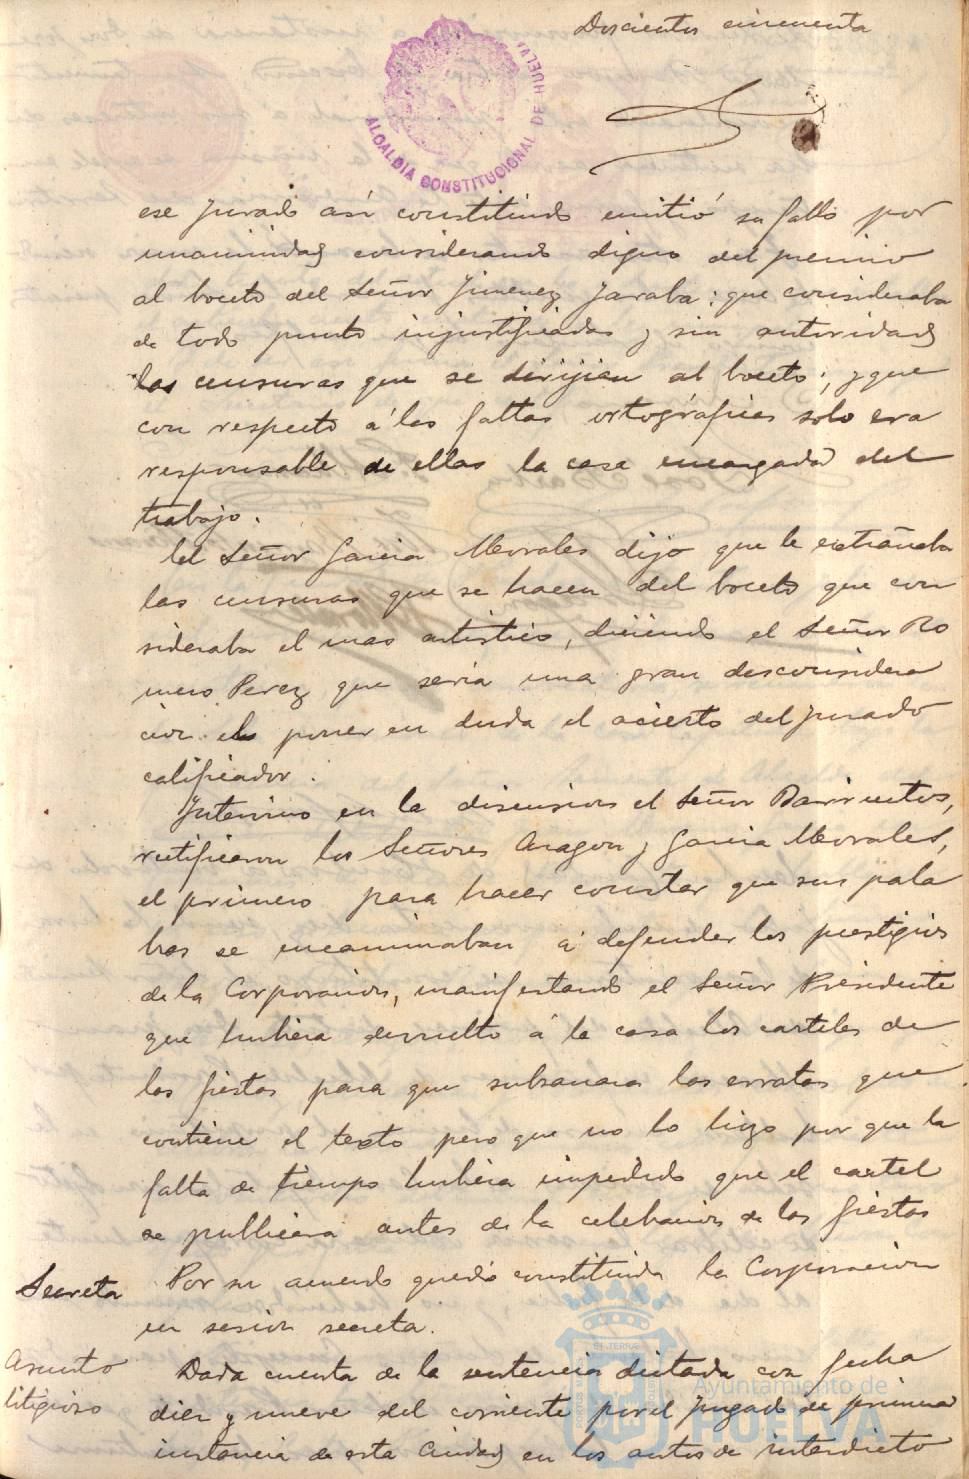 Doscientos cincuenta
ALCALDIA CONSTITUCIONAL DE HUELVA
ese jurado así constituido emitió su fallo por
unanimidad considerando digno del premio
al boceto del Señor Jimenez Jaraba; que consideraba
de todo punto injustificadas y sin autoridad
las censuras que se dirijian al boceto; y que
con respecto á las faltas ortográficas solo era
responsable de ellas la casa encargada del
trabajo.
El Señor Garcia Morales dijo que le extrañaba
las censuras que se hacen del boceto que con
sideraba el mas artistico, diciendo el Señor Ro
mero Perez que seria una gran desconsidera
cion el poner en duda el acierto del jurado
calificador.
Intervino en la discusion el Señor Barrientos,
rectificaron los Señores Aragon y Garcia Morales,
el primero para hacer constar que sus pala
bras se encaminaban á defender los prestigios
de la Corporacion, manifestando el Señor Presidente
que hubiera devuelto á la casa los carteles de
las fiestas para que subsanara las erratas que
contiene el texto pero que no lo hizo por que la
falta de tiempo hubiera impedido que el cartel
se publicara antes de la celebracion de las fiestas
Secreta Por su acuerdo quedó constituida la Corporacion
en sesion secreta.
Asunto Dada cuenta de la sentencia dictada con fecha
litigioso diez y nueve del corriente por el Juzgado de primera
instancia de esta Ciudad en los autos de interdicto
Ayuntamiento de
HUELVA